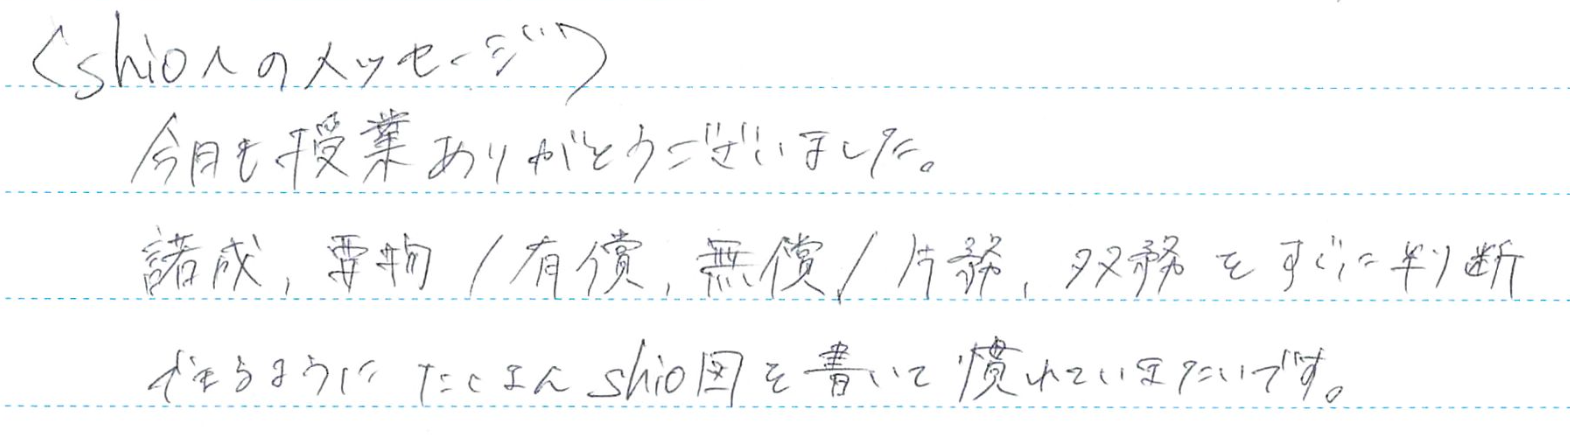 〈shioへのメッセージ〉
今日も授業ありがとうございました。
諾成, 要物 / 有償, 無償 / 片務, 双務 をすぐに判断
できるように たくさん shio図を書いて慣れていきたいです。